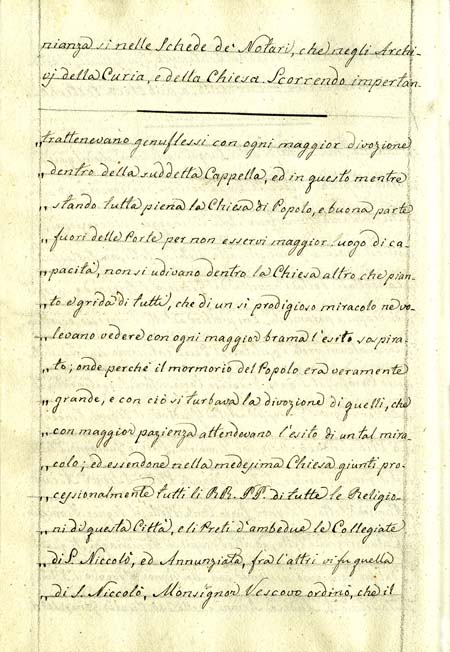 nianza si nelle Schede de' Notari, che negli Archi-
vj della Curia, e della Chiesa. Scorrendo impertan-
„trattenevano genuflessi con ogni maggior divozione
„dentro della suddetta Cappella, ed in questo mentre
„stando tutta piena la Chiesa di Popolo, e buona parte
„fuori delle Porte per non esservi maggior luogo di ca-
„pacità, non si udivano dentro la Chiesa altro che pian-
„to e grida di tutti, che di un si prodigioso miracolo ne vo-
„levano vedere con ogni maggior brama l'esito sospira-
„to; onde perchè il mormorio del Popolo era veramente
„grande, e con ciò si turbava la divozione di quelli, che
„con maggior pazienza attendevano l'esito di un tal mira-
„colo; ed essendone nella medesima Chiesa giunti pro-
„cessionalmente tutti li RR. PP. di tutte le Religio-
„ni di questa Città, e li Preti d'ambedue le Collegiate
„di S. Niccolò, ed Annunziata, fra l'altri vi fu quella
„di S. Niccolò, Monsignor Vescovo ordinò, che il